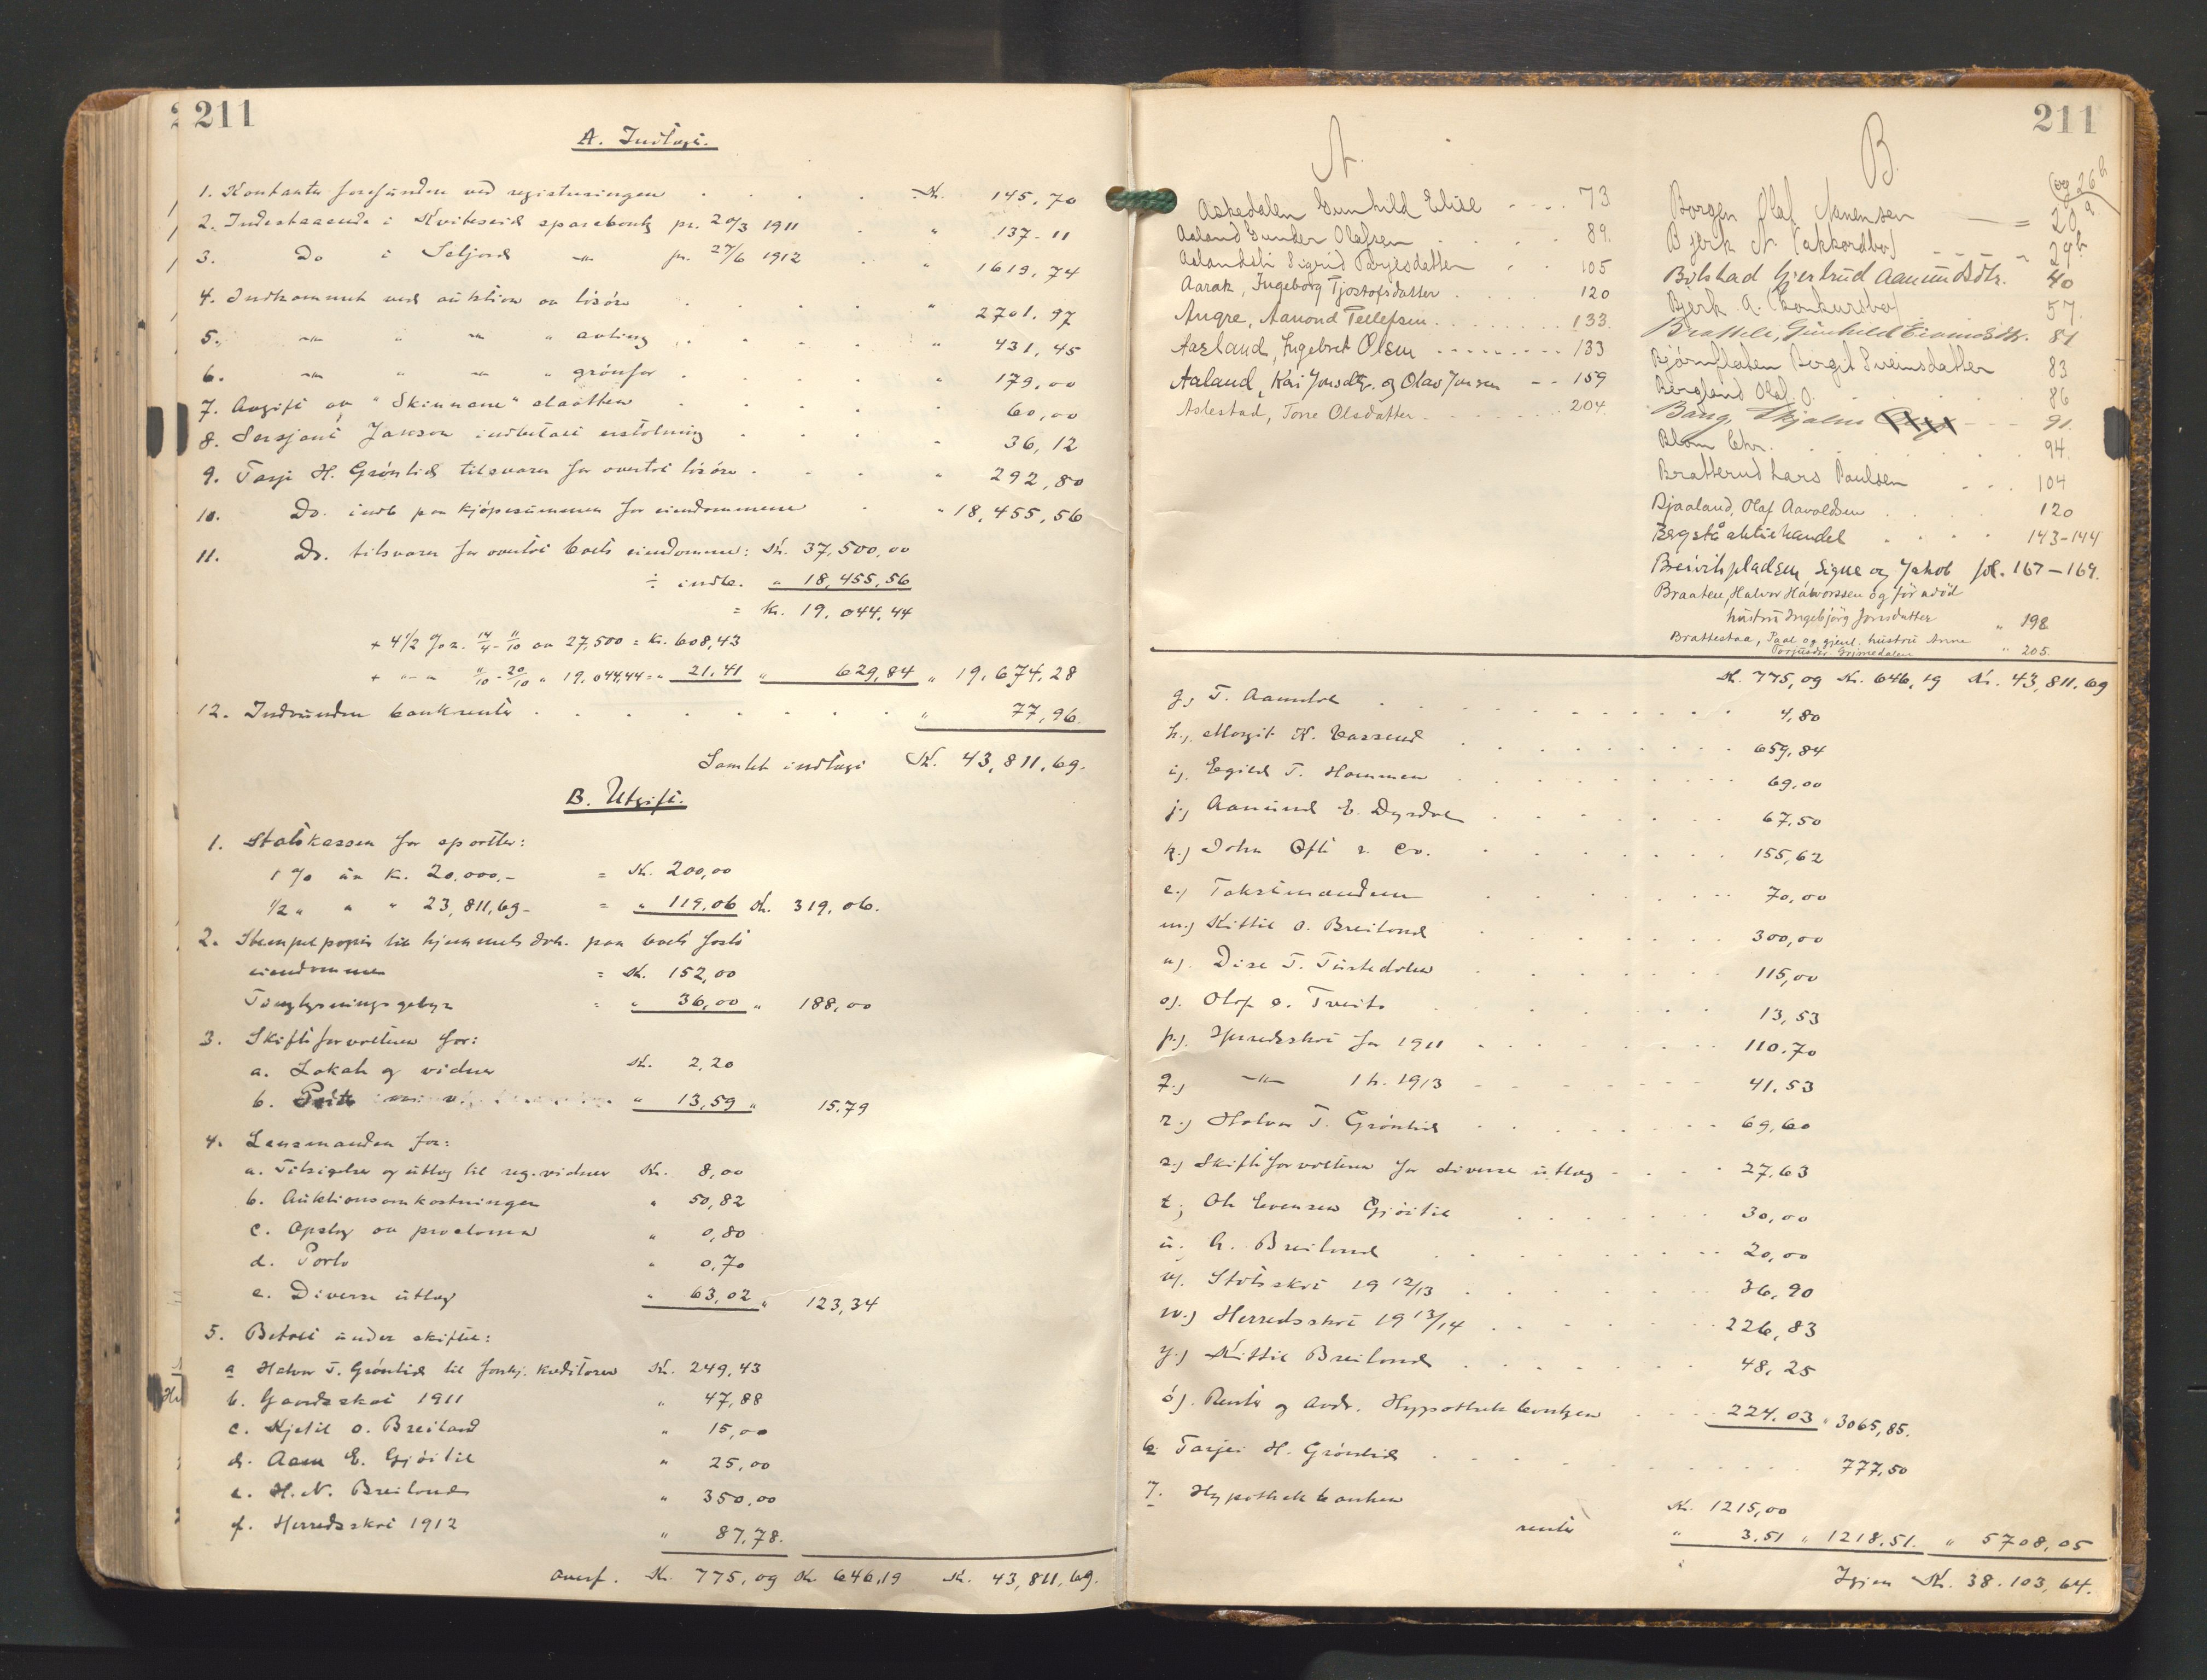 211
A. Indtægt.
1. Kontanter forefunden ved registreringen . . . . Kr. 145,70
2. Indestaaende i Kviteseid sparebank pr. 20/3 1911 . " 137-11
3. Do i Seljord -"- pr. 27/6 1912 . " 1619,74
4. Indkommet ved auktion av lösöre . . . . " 2701.97
5. -"- " -"- " avling . . . . " 431,45
6. -"- " -"- " grönfor . . . . " 179,00
7. Avgift av "Skinnane" slaatten . . . . " 60,00
8. Sersjant Jakson indbetalt erstatning . . . " 36,12
9. Tarjei H. Grönlid tilsvarer for overtat lösöre . . . " 292,80
10. Do. indb paa kjöpesummen for eiendommene . " 18,455,56
11. Do. tilsvarer for overtat boets eiendomme: Kr. 37,500,00
÷ indb. " 18,455,56
= Kr. 19,044,44
+ 4 1/2 % r. 14/4 - 11/10 av 27,500 = Kr. 608,43
+ -"- 11/10 - 20/10 " 19,044,44 = " 21.41 " 629,84 " 19,674,28
12. Indvunden bankrenter . . . . . . . . " 77,96.
Samlet indtægt Kr. 43,811,69.
B. Utgift.
1. Statskassen for sportler:
1 % av Kr. 20,000,- = Kr. 200,00
1/2 " " " 23,811,69- = " 119,06 Kr. 319,06.
2. Stempelpapir til hjemmels dok. paa boets faste
eiendomme = Kr. 152,00
Tinglysningsgebyr = " 36,00 " 188,00
3. Skifteforvalteren for:
a. Lokale og vidner Kr. 2,20
b. " 13,59 " 15,79
4. Lensmanden for:
a. Tilsigelse og utlæg til reg. vidner Kr. 8,00
b. Auktionsomkostninger " 50,82
c. Opslag av proclama " 0,80
d. Porto " 0,70
e. Diverse utlæg " 63,02 " 123,34
5. Betalt under skiftet:
a Halvor T. Grönlid til forskj. kreditorer Kr. 249,43
b. Gaardsskat 1911 " 47,88
c. Kjetil O. Breiland " 15,00
d. Aam E. Gjöitil " 25,00
e. H. N. Breiland " 350,00
f. Herredsskat 1912 " 87,78.
overf. Kr. 775,09 Kr. 646,19 Kr. 43,811,69.
211
A.
Askedalen Gunhild Elise . . . . 73
Aaland Gunder Olafsen . . . . 89.
Aslandsli Sigrid Tarjesdatter . . 105
Aarak, Ingeborg Tjostofsdatter . . . . 120
Augre, Aamond Tellefsen . . . . . . . 133.
Aasland, Ingebret Olsen . . . . . . . . 133
Aaland, Kari Jonsdtr. og Olav Jonsen - - 159
Aslestad, Tone Olsdatter . . . . . . . 204.
B.
(og 26b
Borgen Olaf Aanensen = 20a
Bjerk A. (akkordbo) - - " 29b
Bolstad Gjertrud Aamundsdtr. 40
Bjerk A. (konkursbo) 57.
Brattele, Gunhild Eivindsdtr. 81
Bjørnflaten Birgit Sveinsdatter 83
Bergland Olaf O. . . . 86
Bang, Skjalm 91.
Blom Chr. . . . . . . 94.
Bratterud Lars Paulsen . . . 104
Bjaaland, Olaf Aavoldsen . . . . 120
Bergstå aktiehandel . . . . 143-144
Breivikpladsen Signe og Jakob fol. 167-169.
Braaten, Halvor Halvorssen og før avdöd
hustru Ingebjörg Jonsdatter " 198
Brattestaa, Paal og gjenl. hustru Anne
Torjusdtr. Grimedalen " 205.
Kr. 775,09 Kr. 646,19 Kr. 43,811,69
g., T. Aamdal . . . . . . . . . . 4,80
h., Margit K. Vaasend . . . . . . . . . 659,84
i). Egild T. Hommen . . . . . . . . 69,00
j., Aanund E. Dyrdal . . . . . . . 67.50
k.) John Ofte & Co. . . . . . . . 155,62
l.) Takstmændene . . . . . . . 70,00
m.) Kittil O. Breiland . . . . . . . 300,00
n). Dise T. Tustedalen . . . . . . . 115,00
o). Olaf O. Tveito . . . . . . . 13,53
p.). Herredsskat for 1911 . . . . . . . . 110.70
q.) -"- 1 h. 1913 . . . . . . . . 41.53
r.) Halvor T. Grönlid . . . . . . . . 69,60
s.) Skifteforvalteren for diverse utlæg . . . . 27.63
t; Ole Evensen Gjöitil . . . . . . 30,00
u. A. Breiland . . . . . . . . 20,00
v). Statsskat 1912/13 . . . . . . . 36,90
w.) Herredsskat 1913/14 . . . . . . 226,83
y.) Kittil Breiland . . . . . . . 48,25
ö). Renter og avdr. Hypothekbanken . . . 224.03 " 3065,85.
6 Tarjei H. Grönlid . . . . . . . . . . . 777,50
7. Hypothekbanken Kr. 1215,00
renter " 3.51 " 1218,51. " 5708,05
Igjen Kr. 38.103,64.